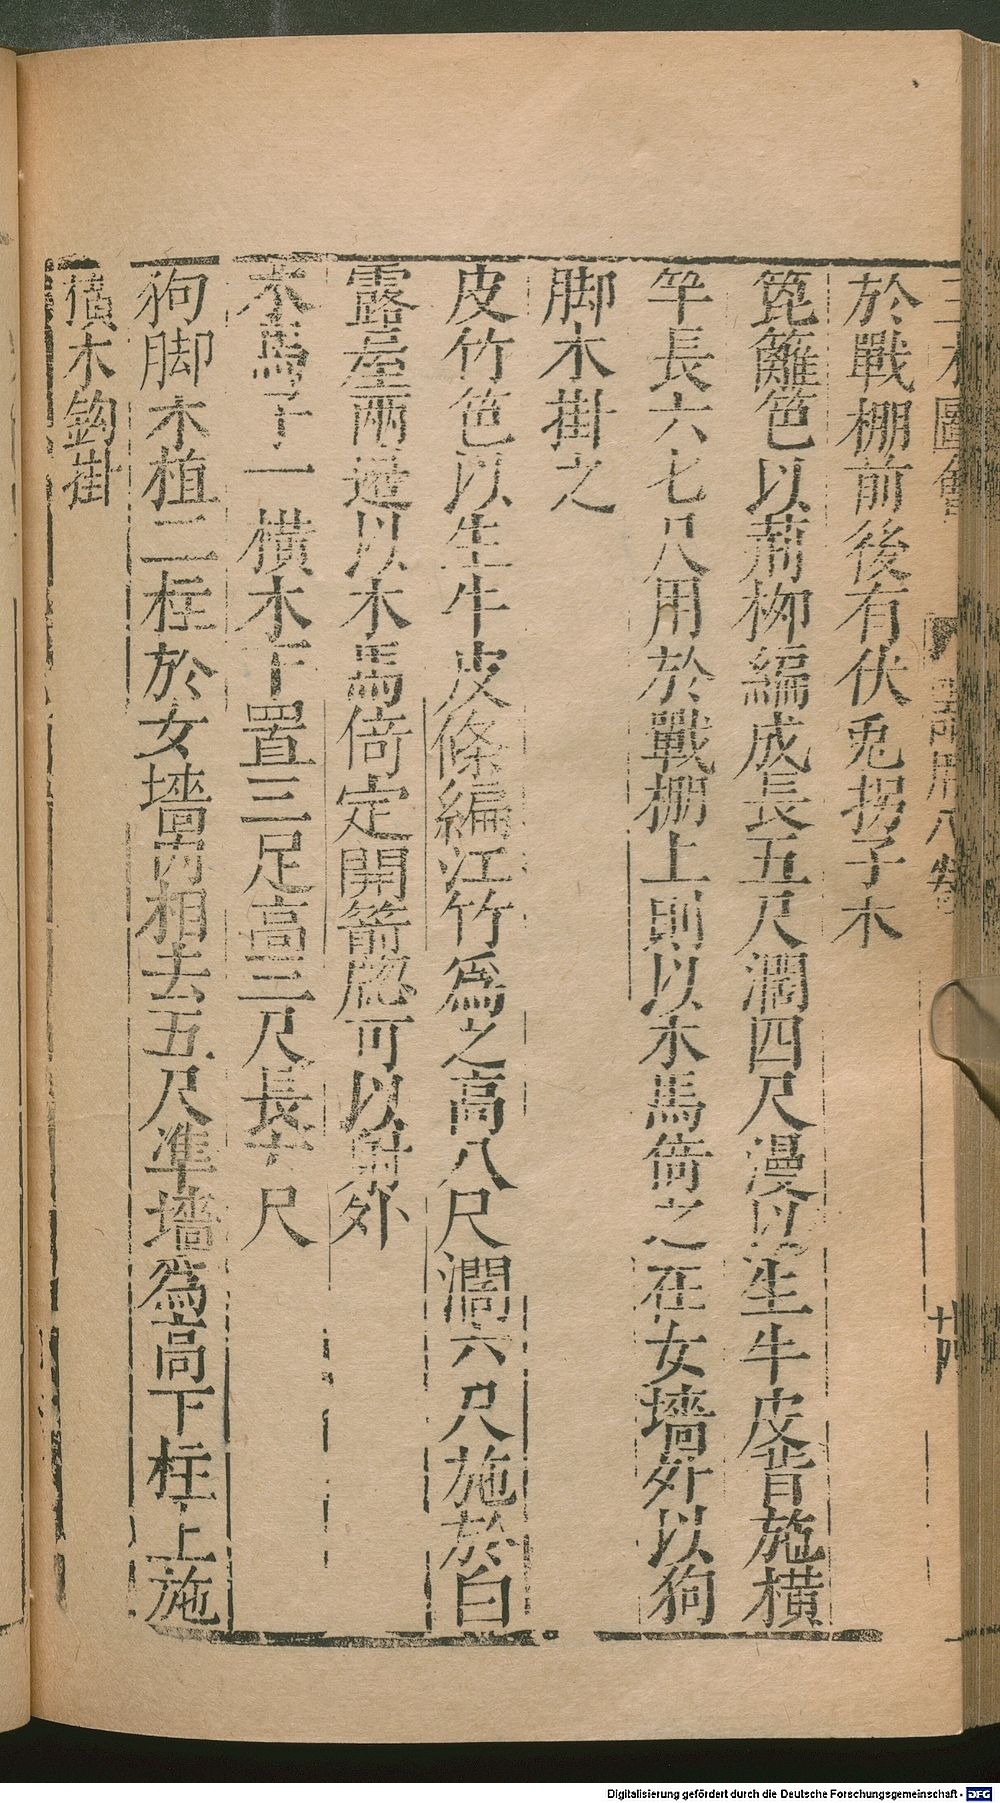 三才圖會
器用八卷
十四
於戰棚前後有伏兎拐子木
笓籬笆以荊柳編成長五尺濶四尺漫以生牛皮背施橫
竿長六七尺用於戰棚上則以木馬倚之在女墻外以狗
脚木掛之
皮竹笆以生牛皮條編江竹爲之高八尺濶六尺施於白
露屋兩邊以木馬倚定開箭牕可以射外
木馬子一橫木下置三足高三尺長六尺
狗脚木植二柱於女墻內相去五尺凖墻爲高下柱上施
橫木鈎掛
Digitalisierung gefördert durch die Deutsche Forschungsgemeinschaft - DFG